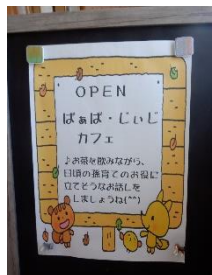 OPEN
ばぁば・じぃじ
カフェ
♪お茶を飲みながら、
日頃の孫育てのお役に
立てそうなお話しを
しましょうね(^^)